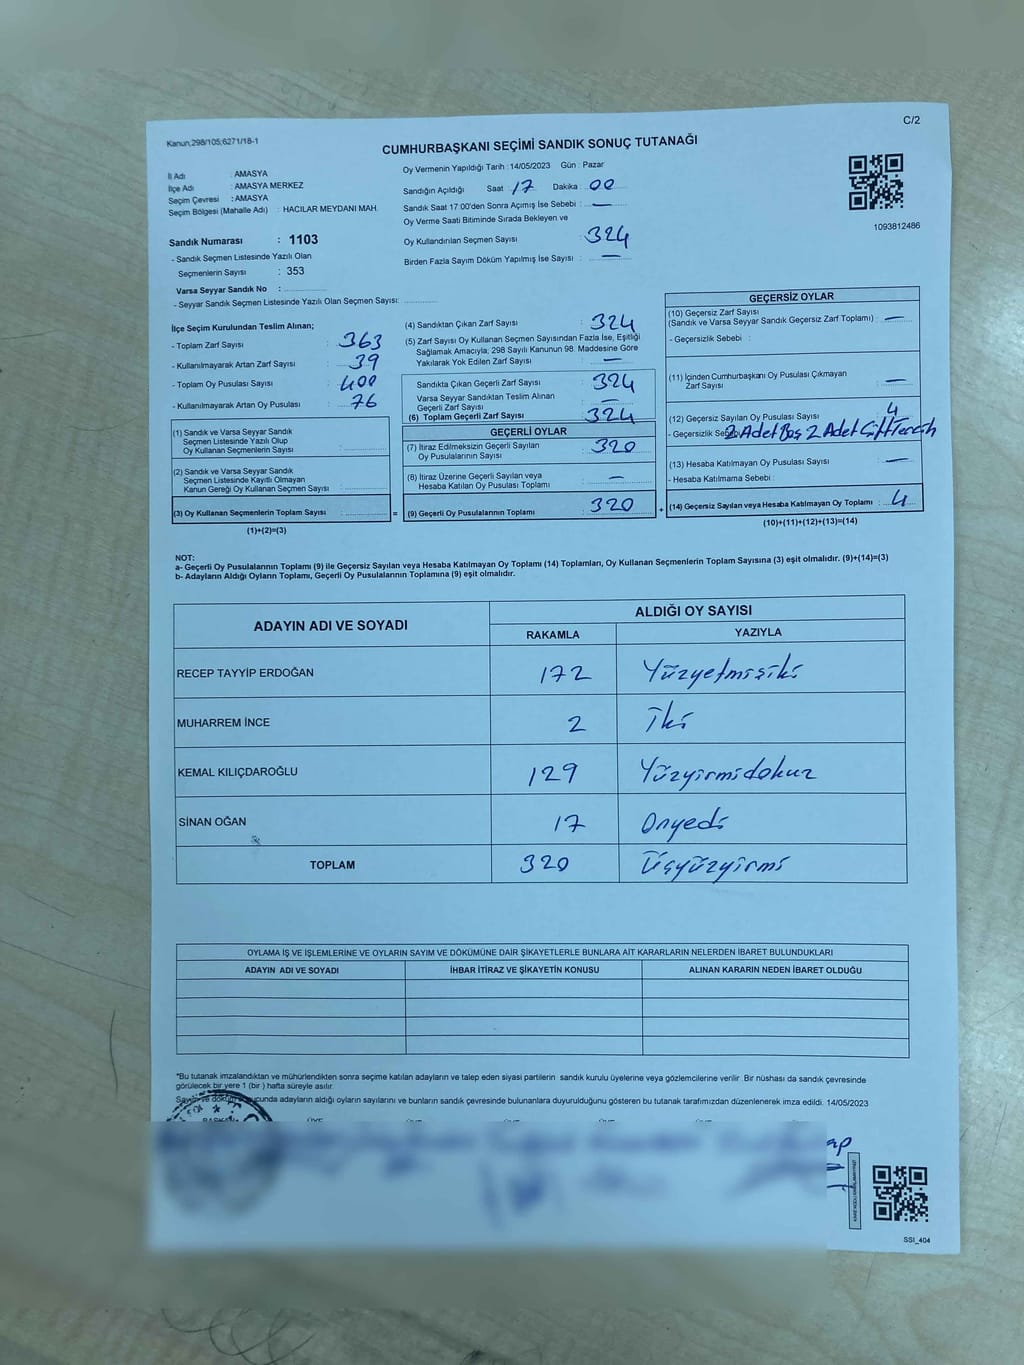 C/2
Kanun;298/105;6271/18-1
CUMHURBAŞKANI SEÇİMİ SANDIK SONUÇ TUTANAĞI
İl Adı : AMASYA
İlçe Adı : AMASYA MERKEZ
Seçim Çevresi : AMASYA
Seçim Bölgesi (Mahalle Adı) : HACILAR MEYDANI MAH.
Sandık Numarası : 1103
- Sandık Seçmen Listesinde Yazılı Olan
Seçmenlerin Sayısı : 353
Varsa Seyyar Sandık No :
- Seyyar Sandık Seçmen Listesinde Yazılı Olan Seçmen Sayısı:
Oy Vermenin Yapıldığı Tarih : 14/05/2023 Gün : Pazar
Sandığın Açıldığı Saat : 17 Dakika : 00
Sandık Saat 17:00'den Sonra Açımış İse Sebebi : —
Oy Verme Saati Bitiminde Sırada Bekleyen ve
Oy Kullandırılan Seçmen Sayısı : 324
Birden Fazla Sayım Döküm Yapılmış İse Sayısı : —
1093812486
İlçe Seçim Kurulundan Teslim Alınan;
- Toplam Zarf Sayısı : 363
- Kullanılmayarak Artan Zarf Sayısı : 39
- Toplam Oy Pusulası Sayısı : 400
- Kullanılmayarak Artan Oy Pusulası : 76
(1) Sandık ve Varsa Seyyar Sandık
Seçmen Listesinde Yazılı Olup
Oy Kullanan Seçmenlerin Sayısı :
(2) Sandık ve Varsa Seyyar Sandık
Seçmen Listesinde Kayıtlı Olmayan
Kanun Gereği Oy Kullanan Seçmen Sayısı :
(3) Oy Kullanan Seçmenlerin Toplam Sayısı :
(1)+(2)=(3)
=
(4) Sandıktan Çıkan Zarf Sayısı : 324
(5) Zarf Sayısı Oy Kullanan Seçmen Sayısından Fazla İse, Eşitliği
Sağlamak Amacıyla; 298 Sayılı Kanunun 98. Maddesine Göre
Yakılarak Yok Edilen Zarf Sayısı : —
Sandıkta Çıkan Geçerli Zarf Sayısı : 324
Varsa Seyyar Sandıktan Teslim Alınan
Geçerli Zarf Sayısı : —
(6) Toplam Geçerli Zarf Sayısı : 324
GEÇERLİ OYLAR
(7) İtiraz Edilmeksizin Geçerli Sayılan
Oy Pusulalarının Sayısı : 320
(8) İtiraz Üzerine Geçerli Sayılan veya
Hesaba Katılan Oy Pusulası Toplamı : —
(9) Geçerli Oy Pusulalarının Toplamı : 320
+
GEÇERSİZ OYLAR
(10) Geçersiz Zarf Sayısı
(Sandık ve Varsa Seyyar Sandık Geçersiz Zarf Toplamı) : —
- Geçersizlik Sebebi :
(11) İçinden Cumhurbaşkanı Oy Pusulası Çıkmayan
Zarf Sayısı : —
(12) Geçersiz Sayılan Oy Pusulası Sayısı : 4
- Geçersizlik Sebebi 2 Adet Boş 2 Adet Çift Tercih
(13) Hesaba Katılmayan Oy Pusulası Sayısı : —
- Hesaba Katılmama Sebebi :
(14) Geçersiz Sayılan veya Hesaba Katılmayan Oy Toplamı : 4
(10)+(11)+(12)+(13)=(14)
NOT:
a- Geçerli Oy Pusulalarının Toplamı (9) ile Geçersiz Sayılan veya Hesaba Katılmayan Oy Toplamı (14) Toplamları, Oy Kullanan Seçmenlerin Toplam Sayısına (3) eşit olmalıdır. (9)+(14)=(3)
b- Adayların Aldığı Oyların Toplamı, Geçerli Oy Pusulalarının Toplamına (9) eşit olmalıdır.
ADAYIN ADI VE SOYADI ALDIĞI OY SAYISI
RAKAMLA YAZIYLA
RECEP TAYYİP ERDOĞAN 172 Yüzyetmişiki
MUHARREM İNCE 2 İki
KEMAL KILIÇDAROĞLU 129 Yüzyirmidokuz
SİNAN OĞAN 17 Onyedi
TOPLAM 320 Üçyüzyirmi
OYLAMA İŞ VE İŞLEMLERİNE VE OYLARIN SAYIM VE DÖKÜMÜNE DAİR ŞİKAYETLERLE BUNLARA AİT KARARLARIN NELERDEN İBARET BULUNDUKLARI
ADAYIN ADI VE SOYADI İHBAR İTİRAZ VE ŞİKAYETİN KONUSU ALINAN KARARIN NEDEN İBARET OLDUĞU
*Bu tutanak imzalandıktan ve mühürlendikten sonra seçime katılan adayların ve talep eden siyasi partilerin sandık kurulu üyelerine veya gözlemcilerine verilir. Bir nüshası da sandık çevresinde
görülecek bir yere 1 (bir ) hafta süreyle asılır.
Sayım ve döküm sonucunda adayların aldığı oyların sayılarını ve bunların sandık çevresinde bulunanlara duyurulduğunu gösteren bu tutanak tarafımızdan düzenlenerek imza edildi. 14/05/2023
SSI_404